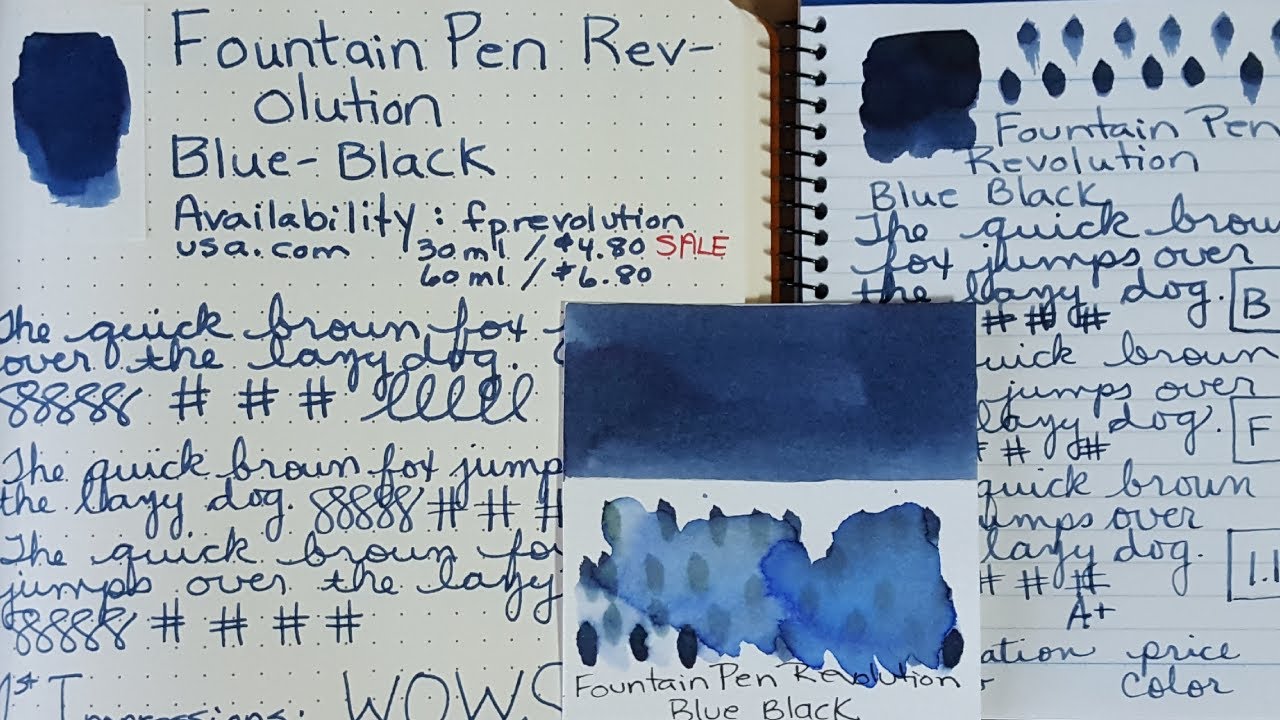 Fountain Pen Rev-
olution
Blue-Black
Availability: fprevolution
usa.com 30 ml / $4.80 SALE
60 ml / $6.80
The quick brown fox
over the lazy dog.
88888 # # # lllll
The quick brown fox jump
the lazy dog. 88888 # # #
The quick brown fo
jumps over the lazy
88888 # # # #
1st Impressions: WOWS
Fountain Pen Revolution
Blue Black
Fountain Pen
Revolution
Blue Black
The quick brow
fox jumps over
the lazy dog. B
# # #
uick brown
jumps over
lazy dog. F
# #
quick brown
umps over
lazy dog.
# # # 1.1
A+
ation price
color